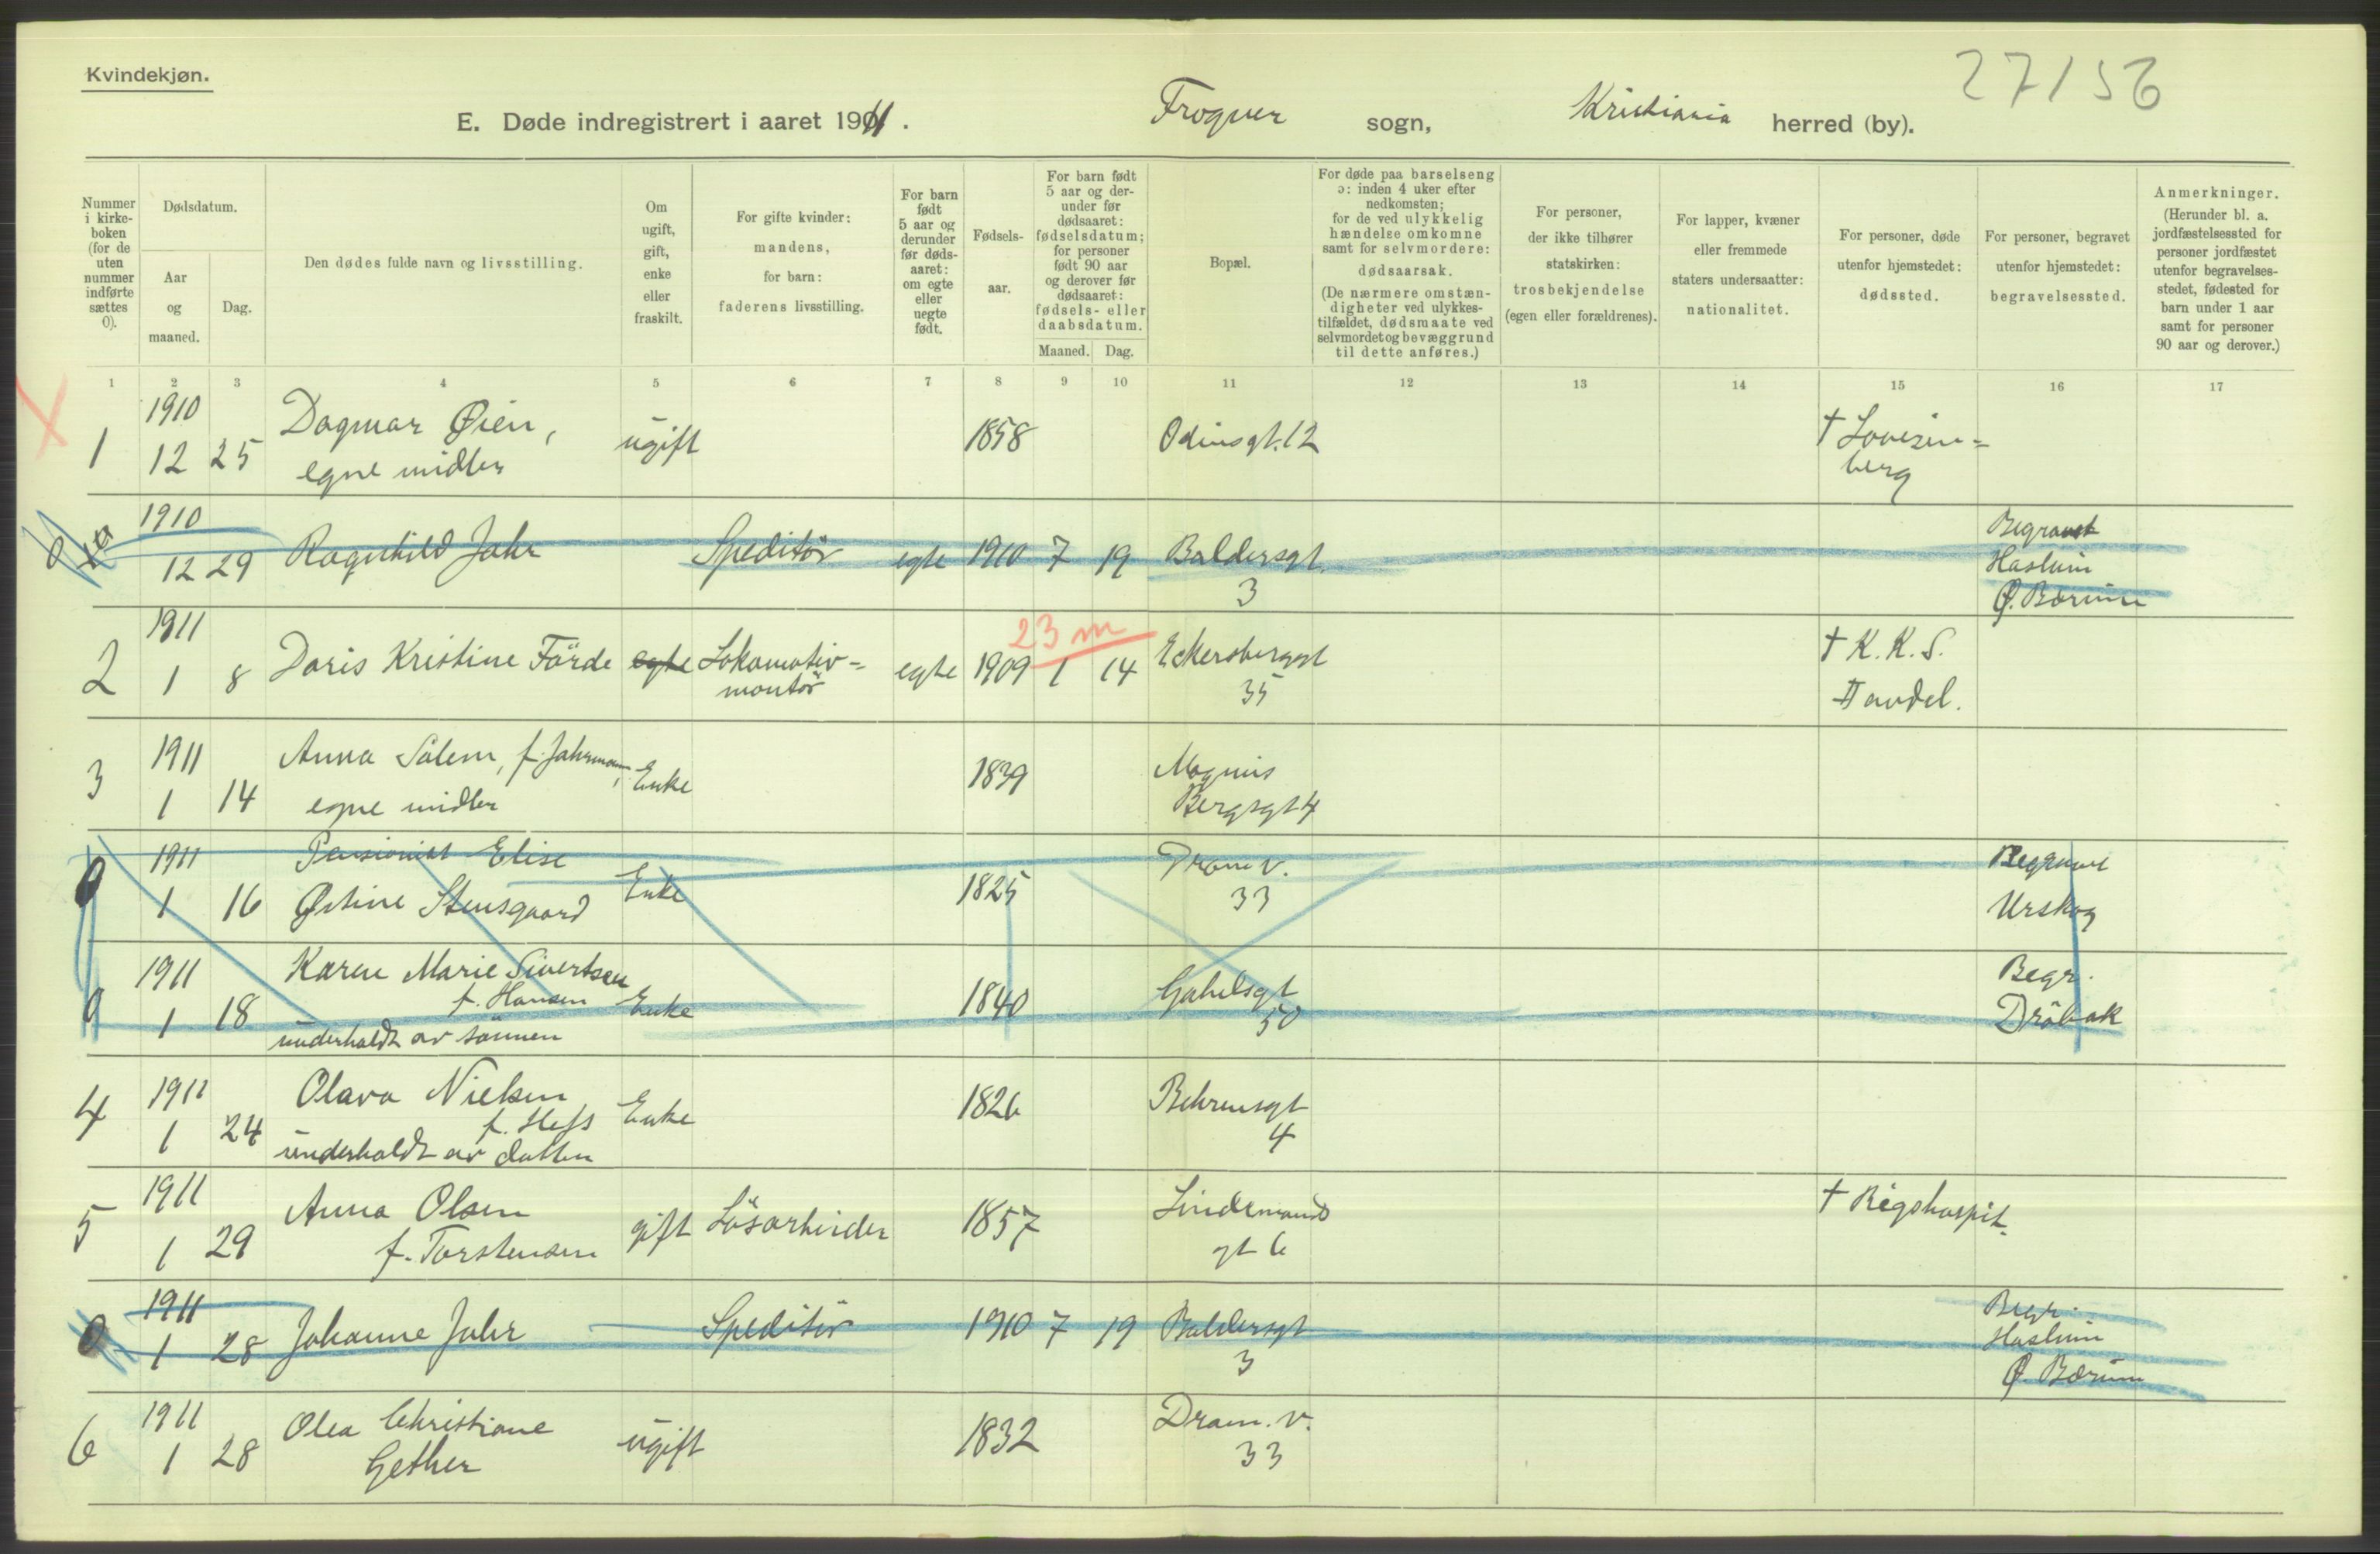 Kvindekjøn.
27/56
E. Døde indregistrert i aaret 1911. Frogner sogn, Kristiania herred (by).
Nummer i kirke-boken (for de uten nummer indførte sættes 0).
Dødsdatum.
Aar og maaned.
Dag.
Den dødes fulde navn og livsstilling.
Om ugift, gift, enke eller fraskilt.
For gifte kvinder: mandens, for barn: faderens livsstilling.
For barn født 5 aar og derunder før døds-aaret: om egte eller uegte født.
Fødsels-aar.
For barn født 5 aar og der-under før dødsaaret: fødselsdatum; for personer født 90 aar og derover før dødsaaret: fødsels- eller daabsdatum.
Maaned. Dag.
Bopæl.
For døde paa barselseng ɔ: inden 4 uker efter nedkomsten; for de ved ulykkelig hændelse omkomne samt for selvmordere: dødsaarsak. (De nærmere omstæn-digheter ved ulykkes-tilfældet, dødsmaate ved selvmordet og bevæggrund til dette anføres.)
For personer, der ikke tilhører statskirken: trosbekjendelse (egen eller forældrenes).
For lapper, kvæner eller fremmede staters undersaatter: nationalitet.
For personer, døde utenfor hjemstedet: dødssted.
For personer, begravet utenfor hjemstedet: begravelsessted.
Anmerkninger. (Herunder bl. a. jordfæstelsessted for personer jordfæstet utenfor begravelses-stedet, fødested for barn under 1 aar samt for personer 90 aar og derover.)
1 2 3 4 5 6 7 8 9 10 11 12 13 14 15 16 17
1 1910 12 25 Dagmar Øien, ugift 1858 Odinsgt. 12 † Lovisen=
egne midler berg
0 1910 12 29 Ragnhild Jahr Speditör egte 1910 7 19 Baldersgt. Begravet
3 Haslum
Ø. Bærum
23 m
2 1911 1 8 Doris Kristine Förde egte Lokomotiv= egte 1909 1 14 Eckersberggt † K. K. S.
montör 35 II avdel.
3 1911 1 14 Anna Salem, f. Jahrmann, Enke 1839 Magnus
egne midler Bergsgt 4
0 1911 1 16 Pensionist Elise Enke 1825 Dram v. Begravet
Østine Stensgaard 33 Urskog
0 1911 1 18 Karen Marie Sivertsen Enke 1840 Gabelsgt Begr.
f. Hansen 50 Dröbak
underholdt av sönnen
4 1911 1 24 Olava Nielsen Enke 1826 Behrensgt
f. Hess 4
underholdt av datten
5 1911 1 29 Anna Olsen gift Lösarbeider 1857 Lindemans † Rigshospit.
f. Torstensen gt 6
0 1911 1 28 Johanne Jahr Speditör 1910 7 19 Baldersgt Begr.
3 Haslum
Ø. Bærum
6 1911 1 28 Olea Christiane ugift 1832 Dram. v.
Gether 33